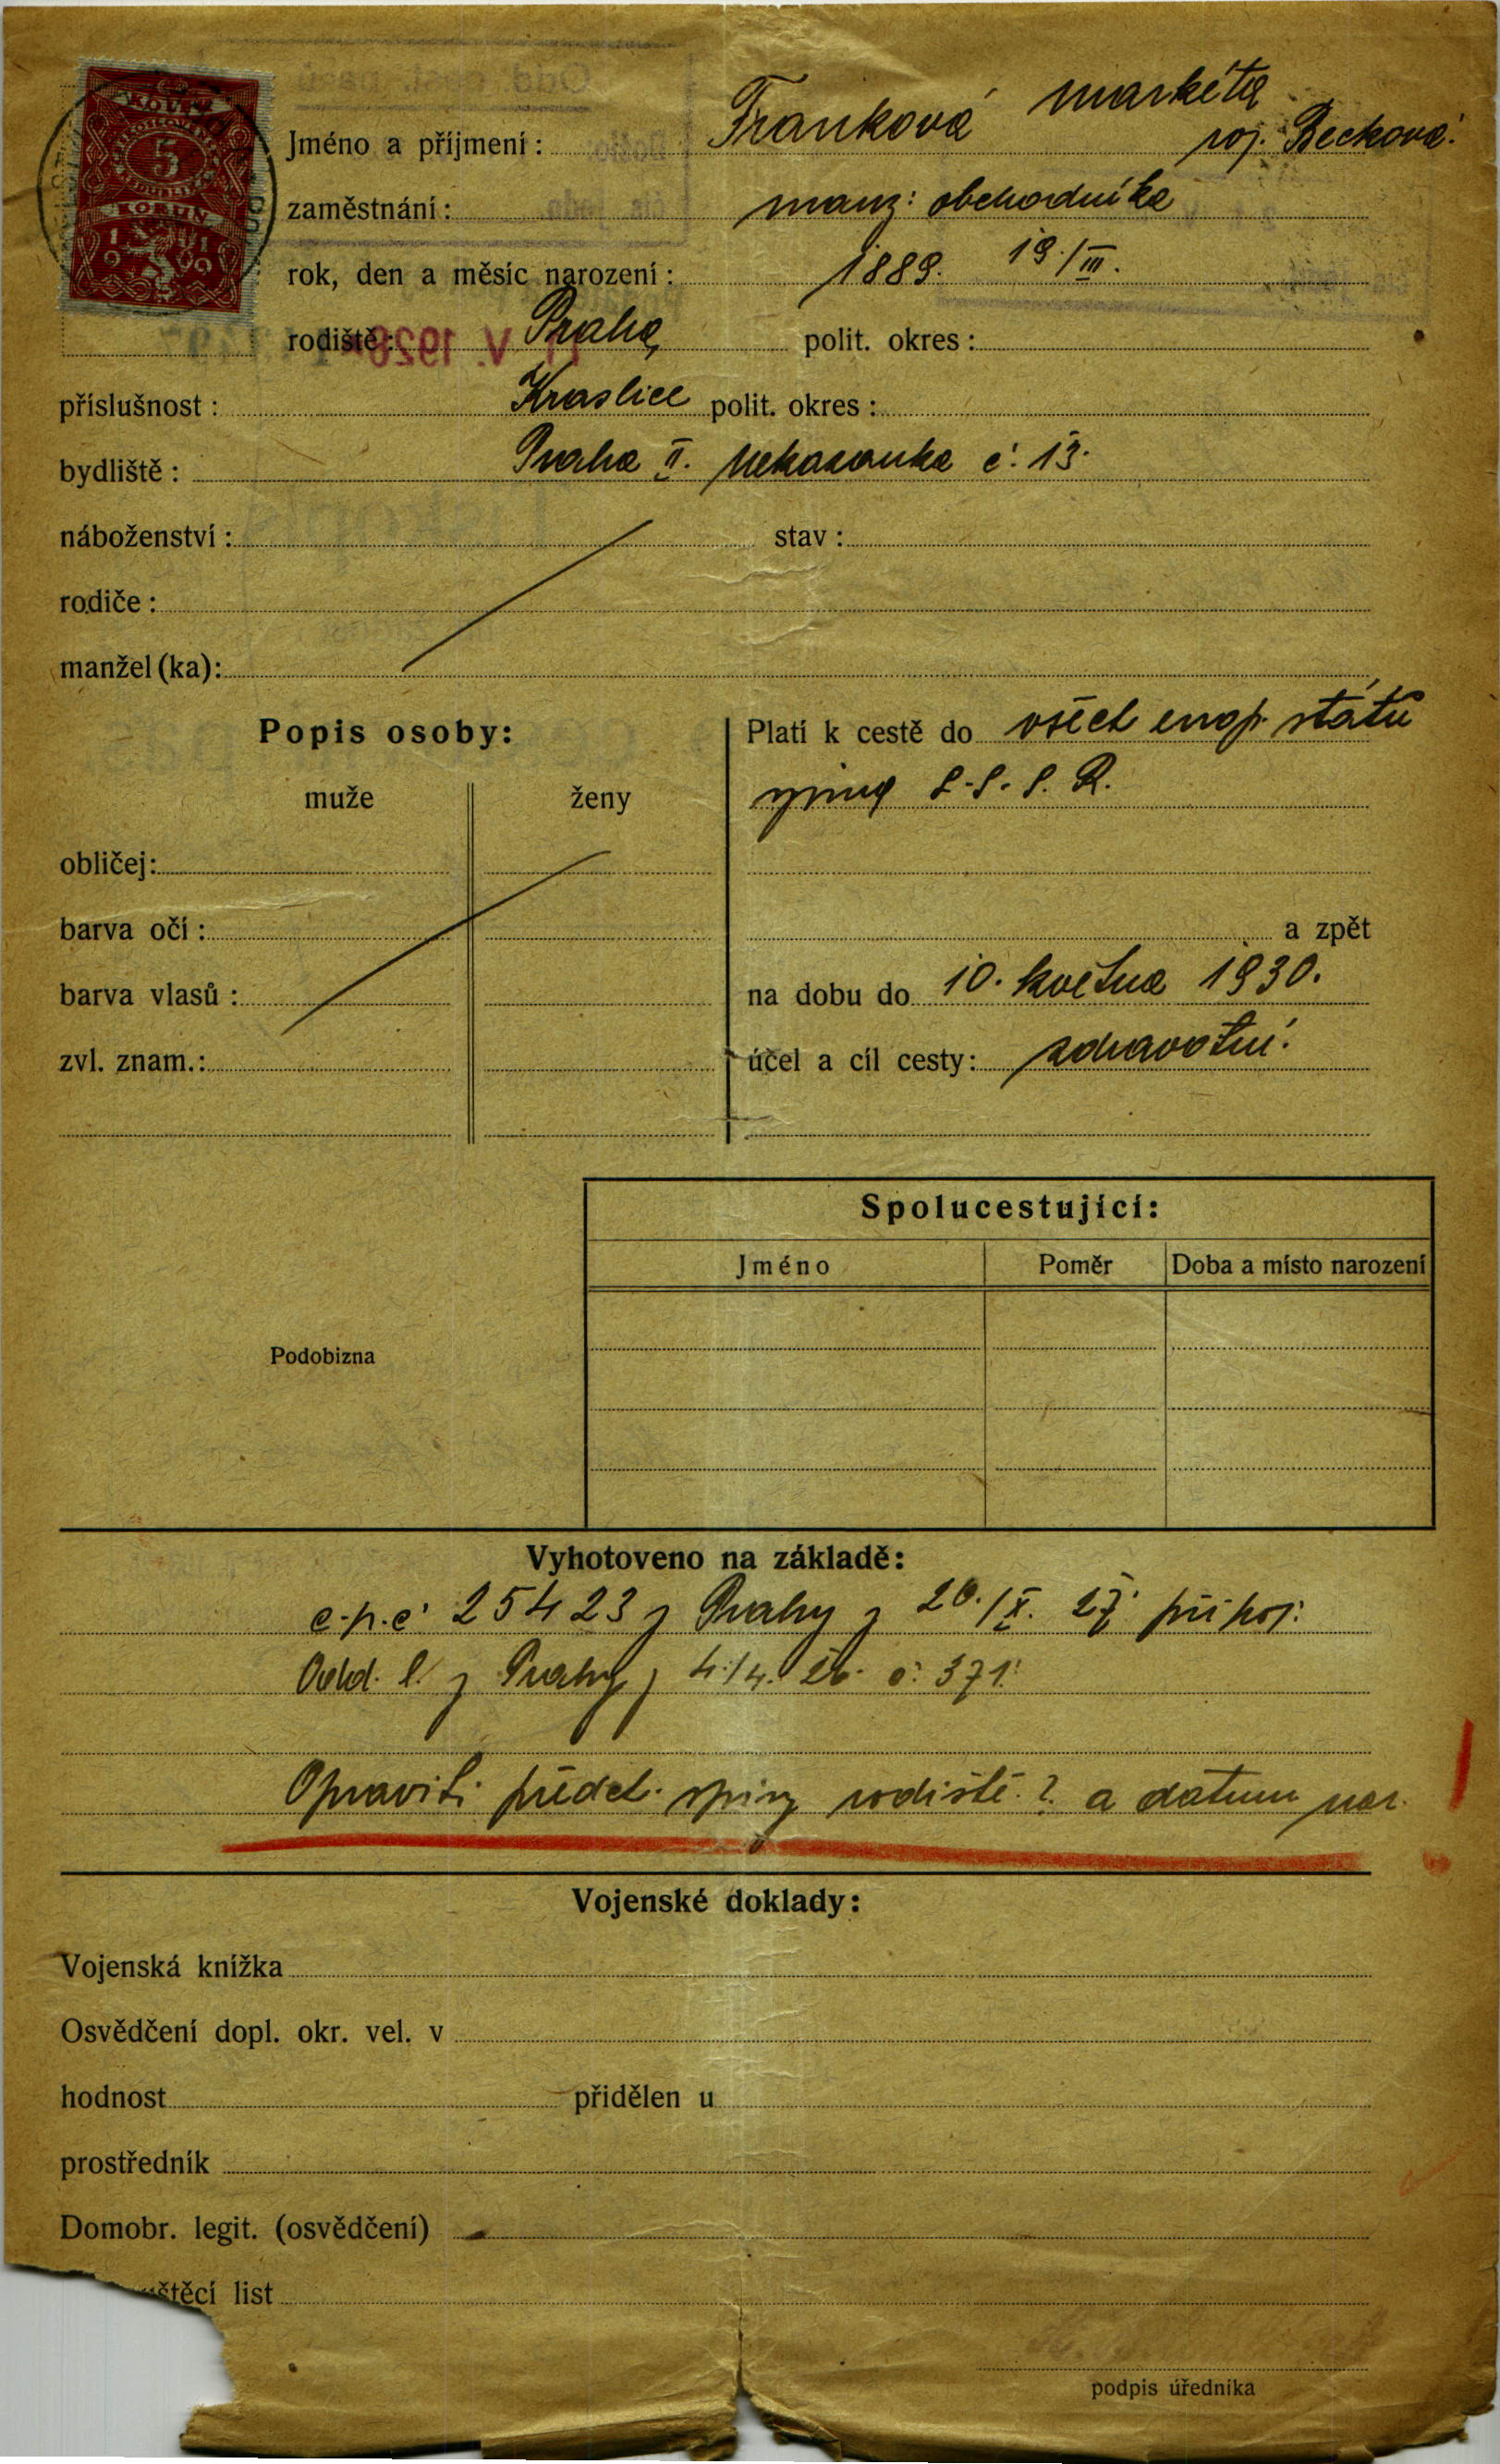 KOLEK
5
KORUN
1919
Jméno a příjmení: Franková Markéta
roz. Becková
zaměstnání: manž: obchodníka
rok, den a měsíc narození: 1889. 19./III.
rodiště: Praha, polit. okres:
příslušnost: Kraslice polit. okres:
bydliště: Praha II. Nekazanka č. 13.
náboženství: stav:
rodiče:
manžel(ka):
Popis osoby:
muže ženy
obličej:
barva očí:
barva vlasů:
zvl. znam.:
Platí k cestě do všech evrop. států
S.S.S.R.
a zpět
na dobu do 10. května 1930.
účel a cíl cesty: zdravotní.
Spolucestující:
Jméno Poměr Doba a místo narození
Podobizna
Vyhotoveno na základě:
c.p.č. 25423 z Prahy z 20./X. 27.
Odd. l. z Prahy z 4./4. 26. č. 371.
Opraviti předch. spisy rodiště? a datum nar.
Vojenské doklady:
Vojenská knížka
Osvědčení dopl. okr. vel. v
hodnost přidělen u
prostředník
Domobr. legit. (osvědčení)
štěcí list
podpis úředníka